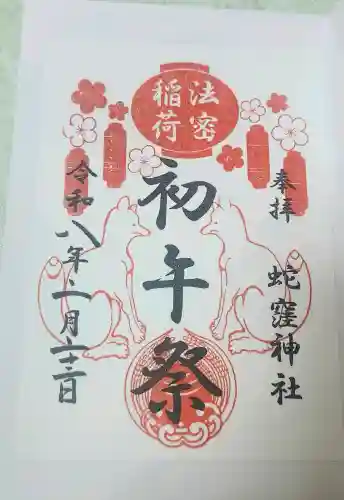 法密
稲荷
奉拝
蛇窪神社
初午祭
令和八年二月二十二日